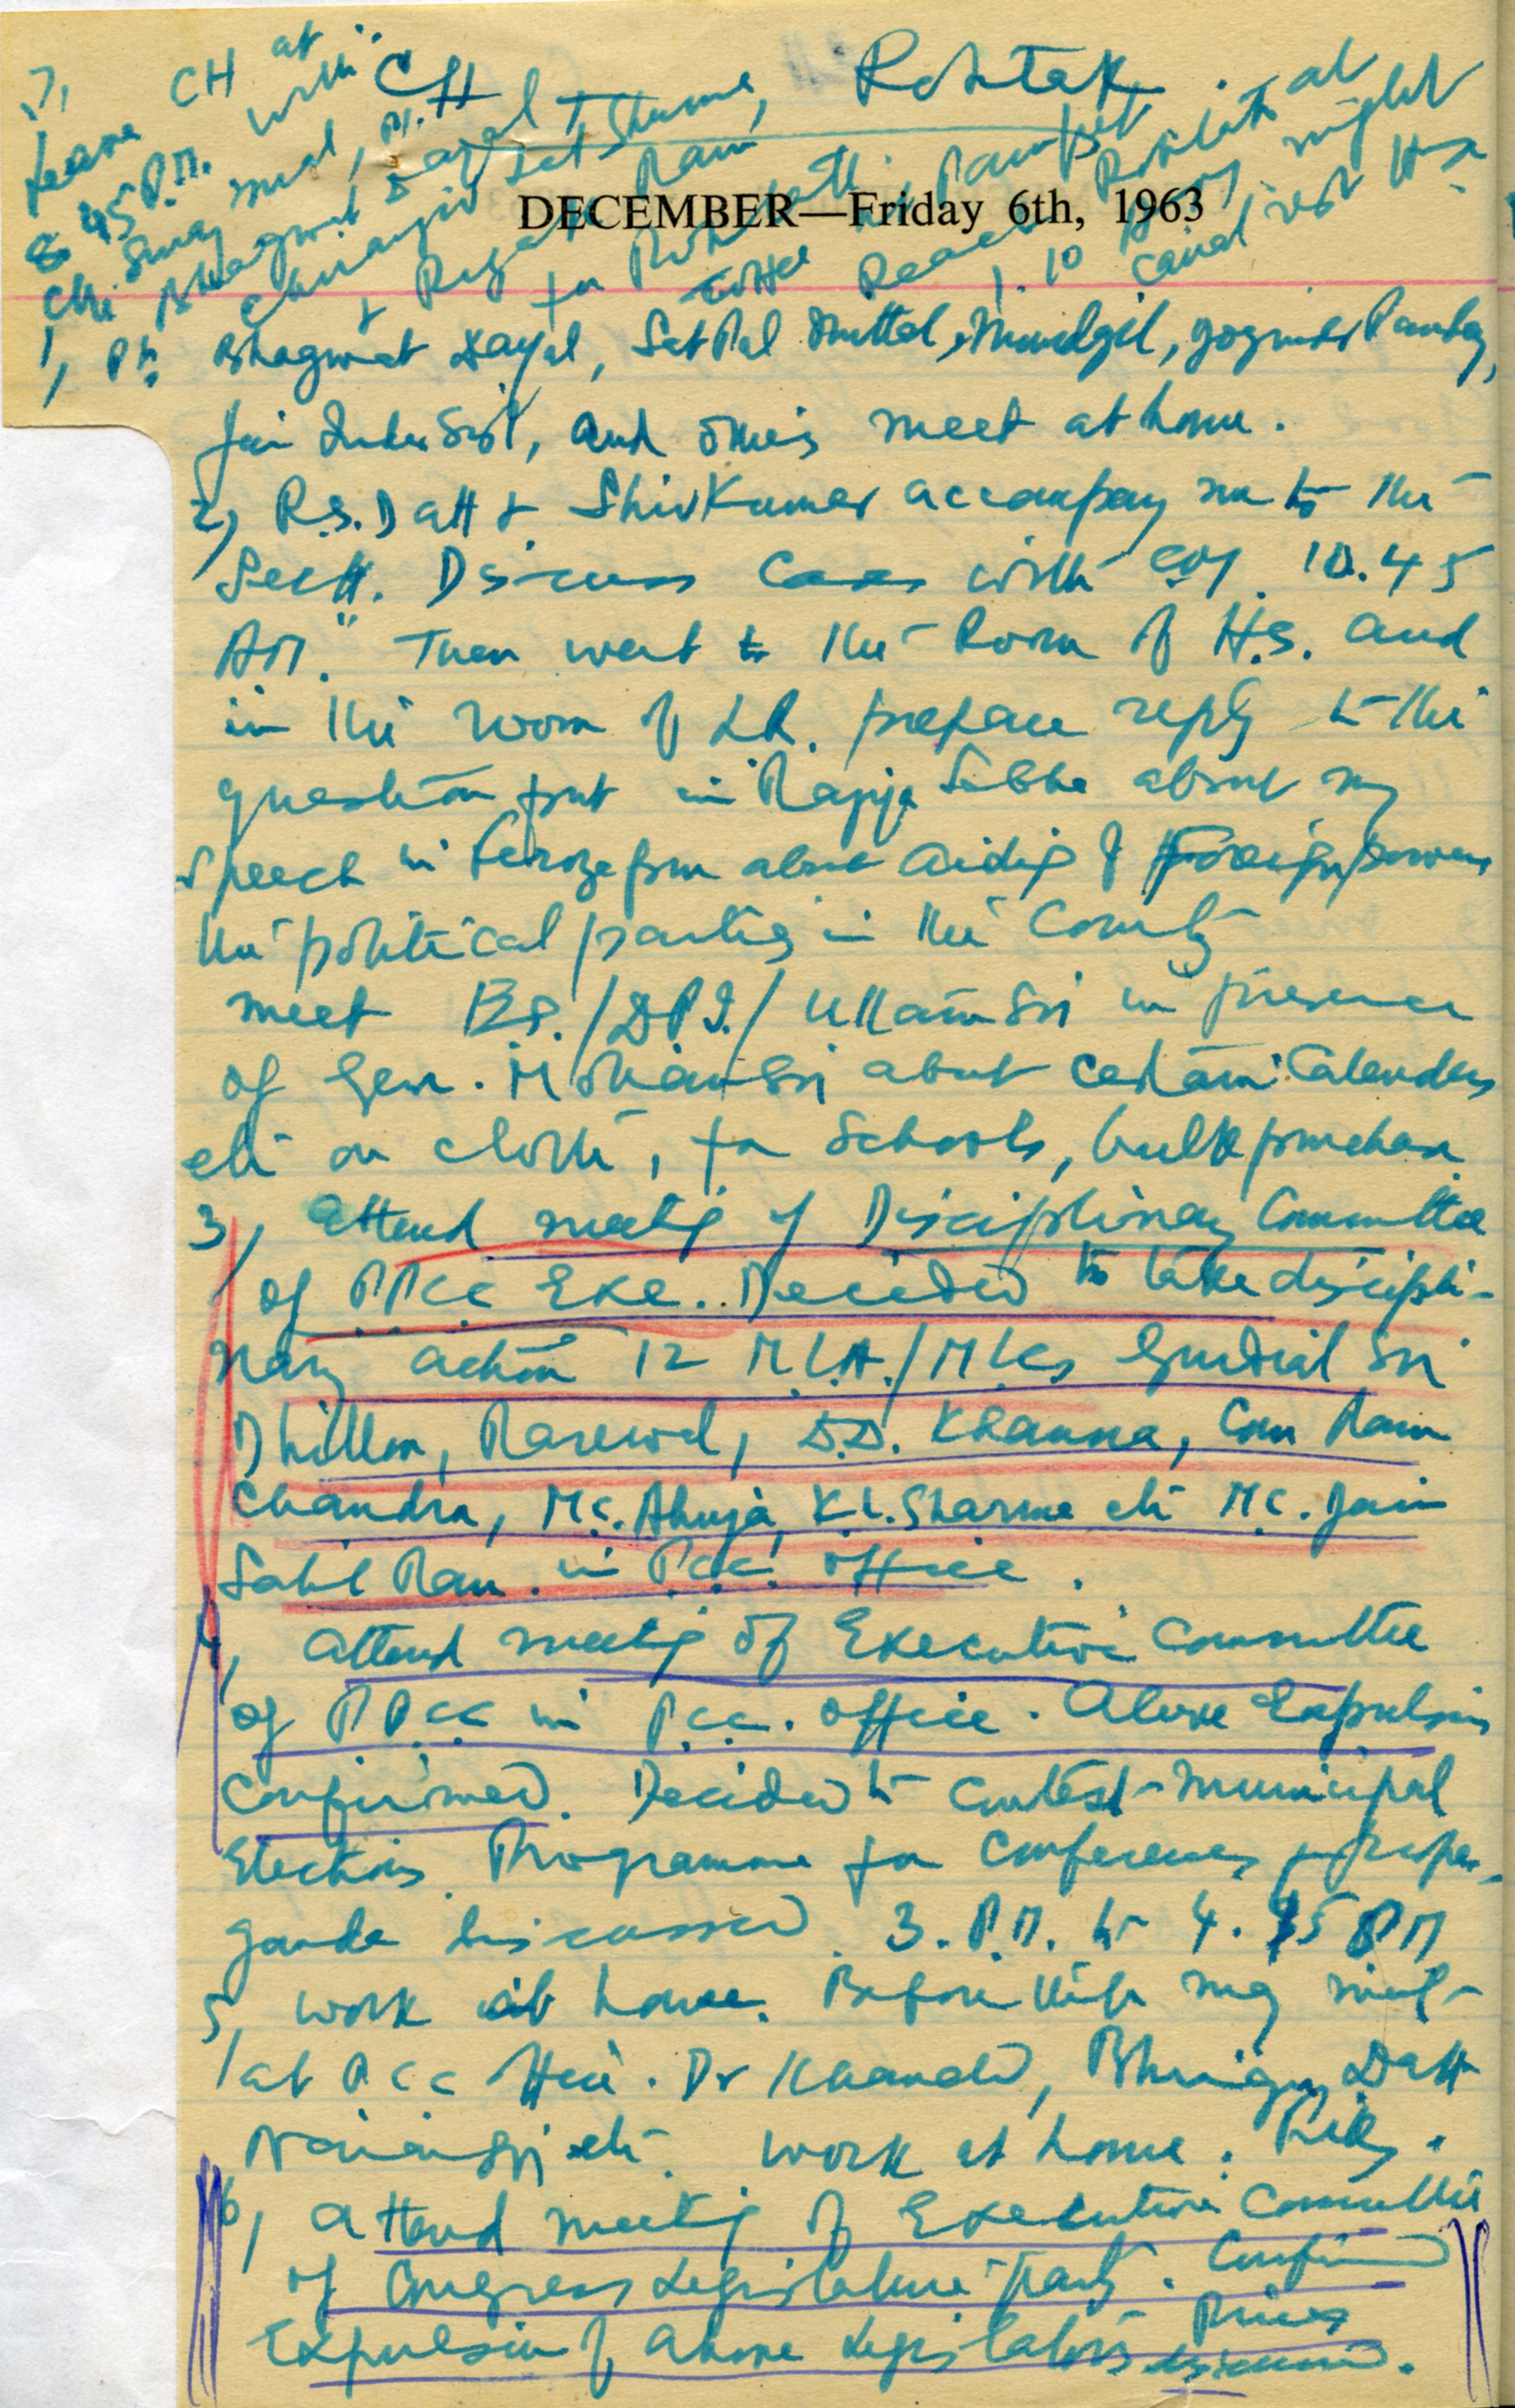 CH Rohtak.
DECEMBER—Friday 6th, 1963
7, Leave CH at
8.45 P.M. with
Ch. mal, Pt.
Bhagwat Dayal
Chiranji Lal Sharma,
& Ram
for Rohtak.
coffee in Panipat
Reach Rohtak at
1.10 night
Canal rest Hse
1, Pt. Bhagwat Dayal, Sat Pal Mittal, Mundgil, Joginder Pandey,
Jai Inder Singh, and others meet at home.
2, R.S. Datt & Shiv Kumar accompany me to the
Sectt. Discuss Cases with 10.45
AM. Then went to the Room of H.S. and
in the room of L.R. prepare reply to the
question put in Rajya Sabha about my
speech in Ferozepur about aiding of Foreign powers
the political parties in the Country
meet ES./DPI./ Uttam Sri in presence
of Gen. Mohan Sri about certain Calendars
etc on cloth, for Schools, bulk purchase
3, Attend meeting of Disciplinary Committee
of PPCC Exe. Decided to take discipli-
nary action 12 M.L.A./MLCs Gurdial Sri
Dhillon, Rarewal, D.D. Khanna, Com Ram
Chandra, M.C. Ahuja, K.L. Sharma etc M.C. Jain
Sahil Ram. in P.C.C. office.
4, Attend meeting of Executive Committee
of PPCC in P.C.C. office. Above Expulsions
Confirmed. Decided to contest Municipal
Elections. Programme for Conferences & propa-
ganda discussed. 3. P.M. to 4.45 PM
5, work at home. Before this mg meet
at PCC Office. Dr Bhrigu Datt
Narain Sri etc. work at home. Files.
6, Attend meeting of Executive Committee
of Congress Legislature Party. Confirmed
Expulsion of above Legislators Prices
discussed.